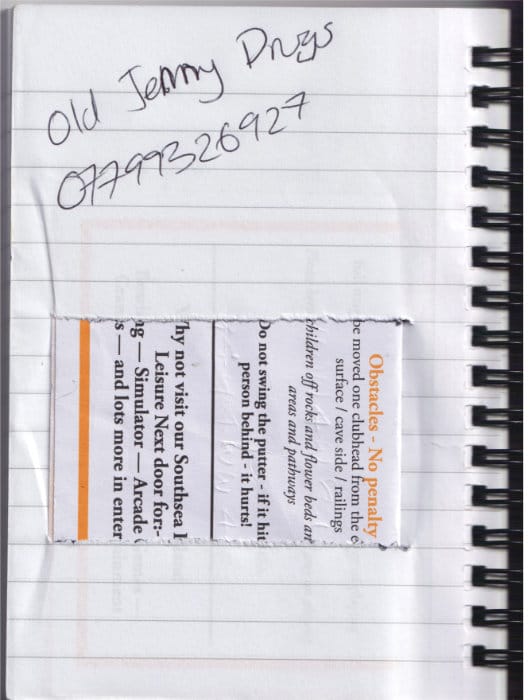 Old Jenny Drugs
07799326927
Obstacles - No penalty
be moved one clubhead from the e
surface / cave side / railings
children off rocks and flower beds an
areas and pathways
Do not swing the putter - if it hit
person behind - it hurts!
hy not visit our Southsea
Leisure Next door for:-
ng — Simulator — Arcade
s — and lots more in enter